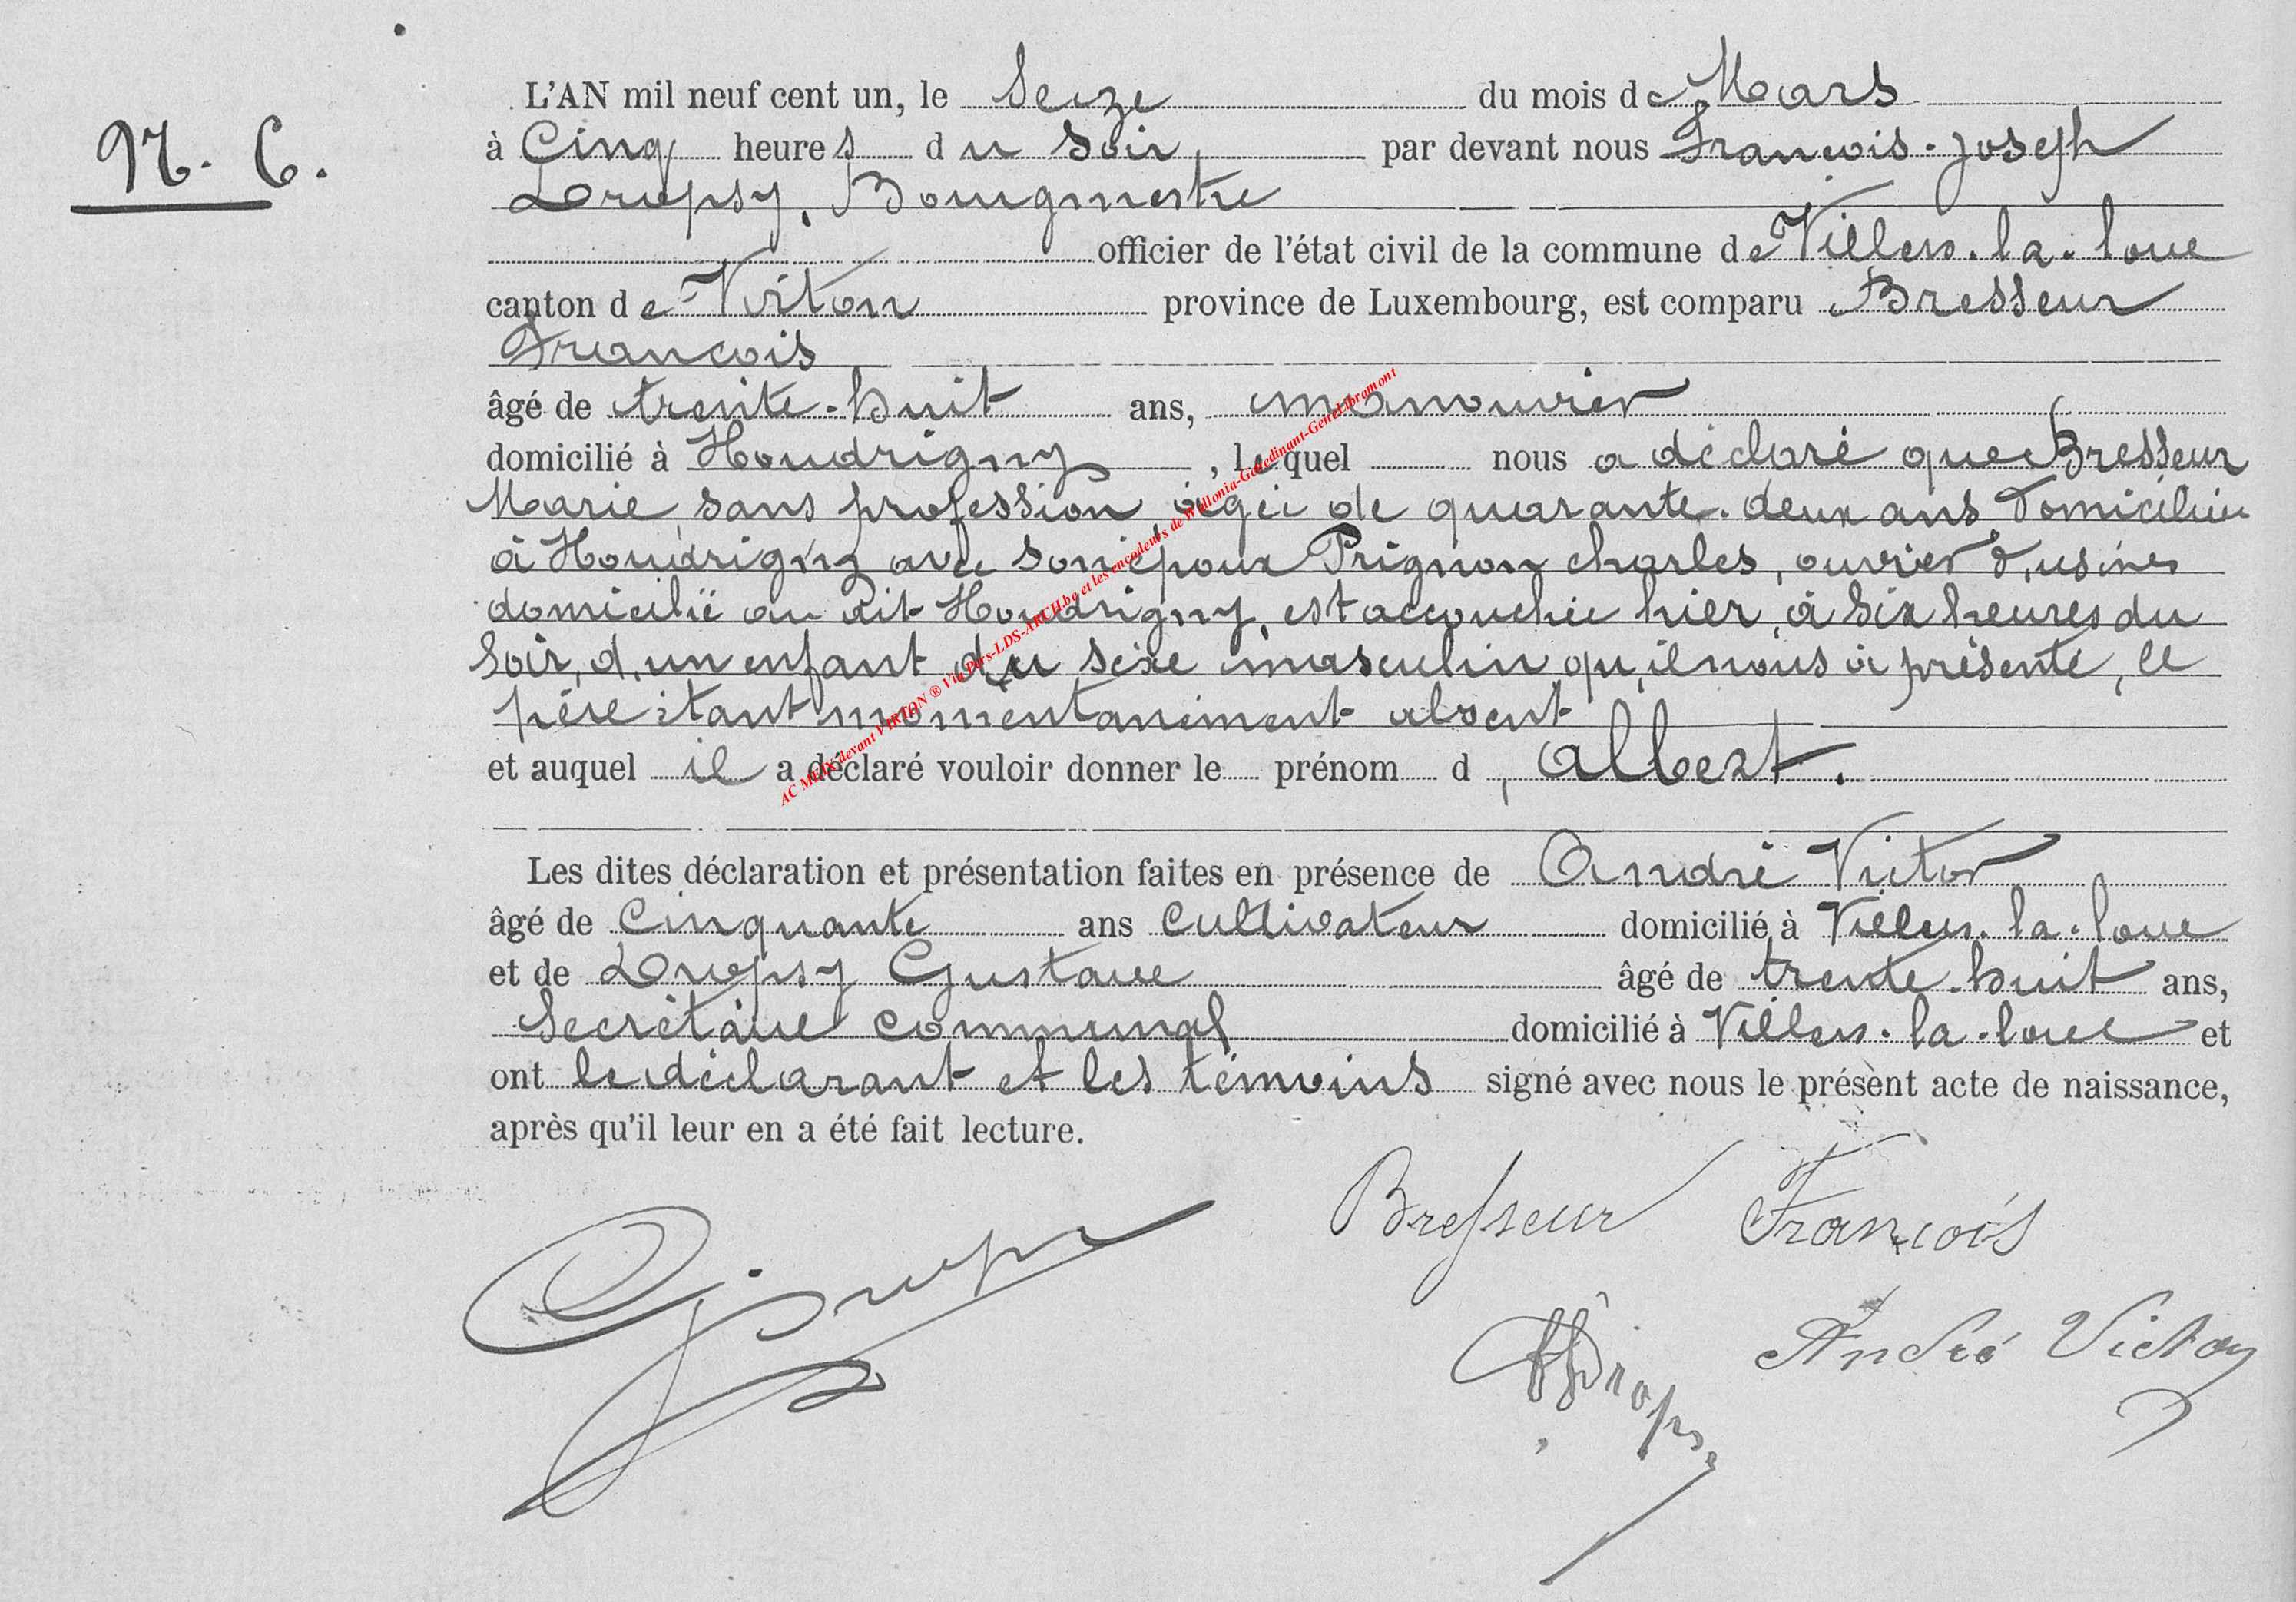 N. 6.
L'AN mil neuf cent un, le Seize du mois de Mars
à Cinq heures du soir, par devant nous François-Joseph
Dropsy, Bourgmestre
officier de l'état civil de la commune de Villers-la-loue
canton de Virton province de Luxembourg, est comparu Bresseur
François
âgé de trente-huit ans, manouvrier
domicilié à Houdrigny, lequel nous a déclaré que Bresseur
Marie, sans profession, âgée de quarante-deux ans domiciliée
à Houdrigny avec son époux Prignon charles, ouvrier d'usines
domicilié au dit Houdrigny, est accouchée hier, à six heures du
soir, d'un enfant du sexe masculin qu'il nous à présenté, le
père étant momentanément absent
et auquel il a déclaré vouloir donner le prénom d'Albert.
Les dites déclaration et présentation faites en présence de André Victor
âgé de Cinquante ans cultivateur domicilié à Villers-la-loue
et de Dropsy Gustave âgé de trente-huit ans,
Secrétaire communal domicilié à Villers-la-loue et
ont le déclarant et les témoins signé avec nous le présent acte de naissance,
après qu'il leur en a été fait lecture.
Bresseur François
André Victor
AC MEIX devant VIRTON ® Via Pars-LDS-ARCH.be et les encodeurs de Wallonia-Genedinant-GeneLibramont